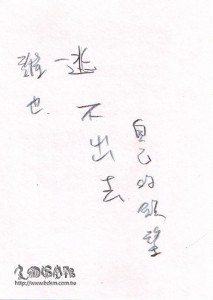 誰也
逃不出去
自己的欲望
http://www.bdrm.com.tw